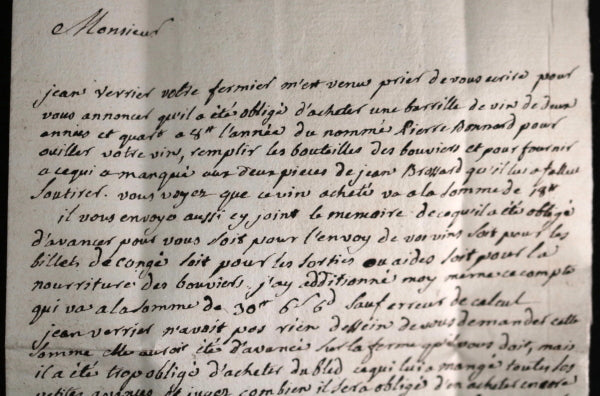 Monsieur
jean verrier votre fermier m'est venu prier de vous ecrire pour
vous annoncer qu'il a été obligé d'acheter une barrille de vin de deux
années et quart a 8tt l'année du nommé Pierre Bonnard pour
ouiller votre vin, remplir les bouteilles des bouviers et pour fournir
a ce qui a manqué aux deux pieces de jean Brossard qu'il a fallu
soutirer. vous voyez que ce vin acheté va a la somme de 18tt
il vous envoye aussi cy joint le memoire de ce qu'il a été obligé
d'avancer pour vous soit pour l'envoy de vos vins soit pour les
billets de congé soit pour les sorties ou aides soit pour la
nourriture des bouviers. j'ay additionné moy meme ce compte
qui va a la somme de 30tt 6s 6d sauf erreur de calcul
jean verrier n'avoit pas rien dessein de vous demander cette
somme elle auroit été d'avance sur la ferme qu'il vous doit, mais
il a été trop obligé d'acheter du bled ce qui lui a mangé toutes les
petites avances de juger combien il sera obligé d'en acheter encore